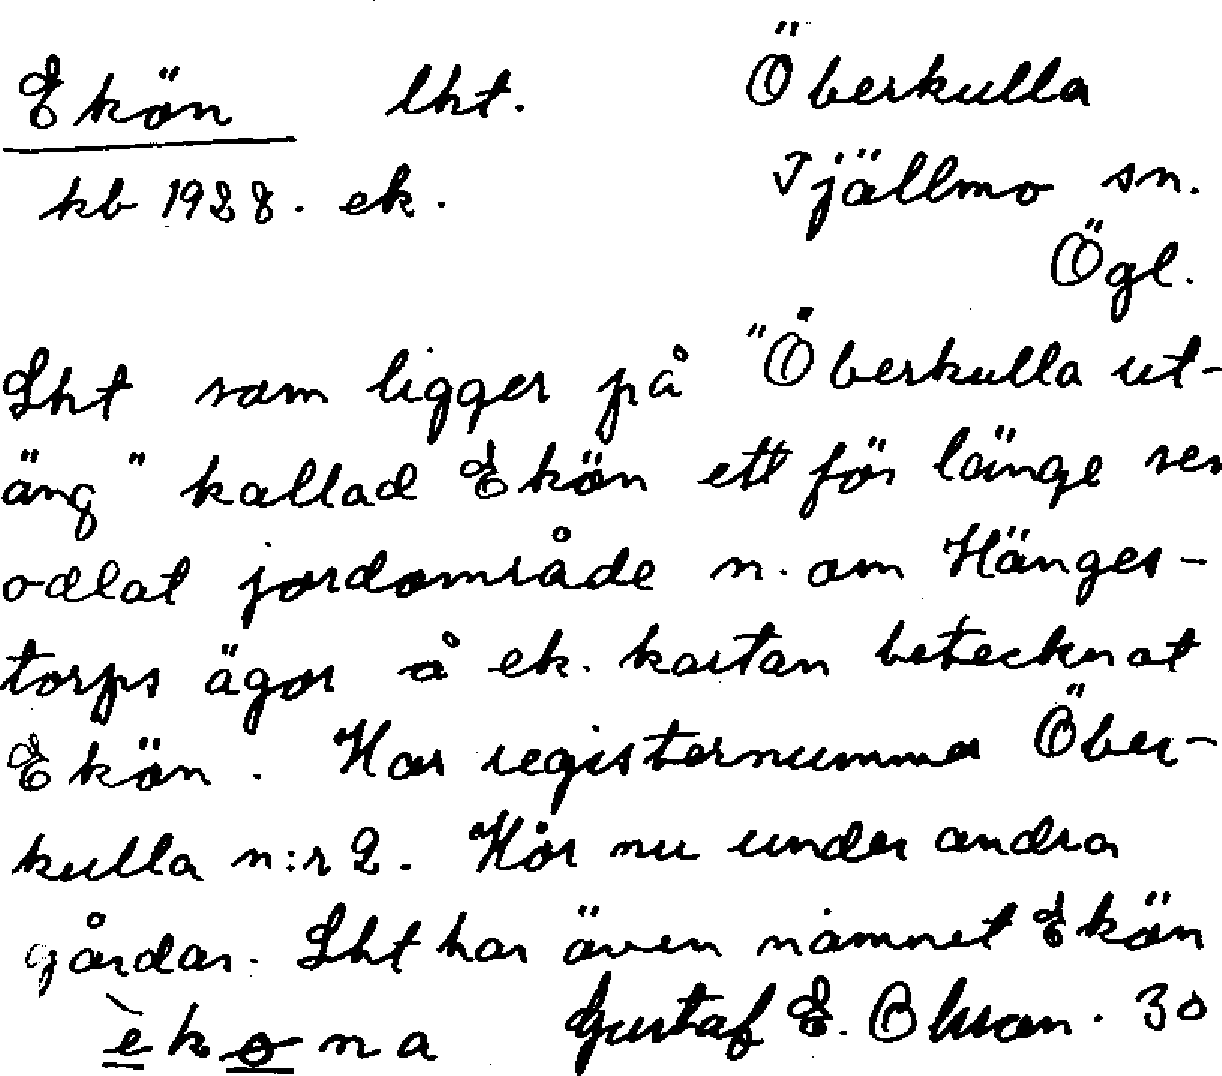 Ekön lht. Öberkulla
kb 1928. ek. Tjällmo sn.
Ögl.
Lht som ligger på "Öberkulla ut-
äng" kallad Ekön ett för länge sen
odlat jordområde n. om Hänges-
torps ägor å ek. kartan betecknat
Ekön. Har registernummer Öber-
kulla n:r 2. Hör nu under andra
gårdar. Lht har även namnet Ekön
èkona Gustaf E. Olsson. 30